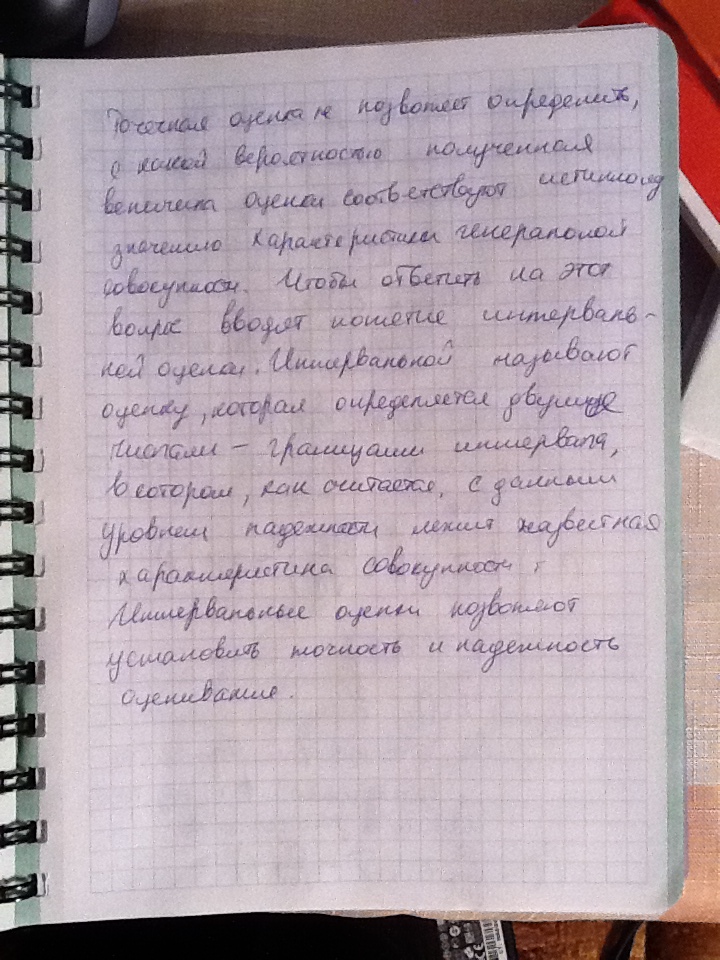 Точечная оценка не позволяет определить,
с какой вероятностью полученная
величина оценки соответствует истинному
значению характеристики генеральной
совокупности. Чтобы ответить на этот
вопрос вводят понятие интерваль-
ной оценки. Интервальной называют
оценку, которая определяется двумя
числами - границами интервала,
в котором, как ожидается, с данным
уровнем надежности лежит неизвестная
характеристика совокупности.
Интервальные оценки позволяют
установить точность и надежность
оценивание.